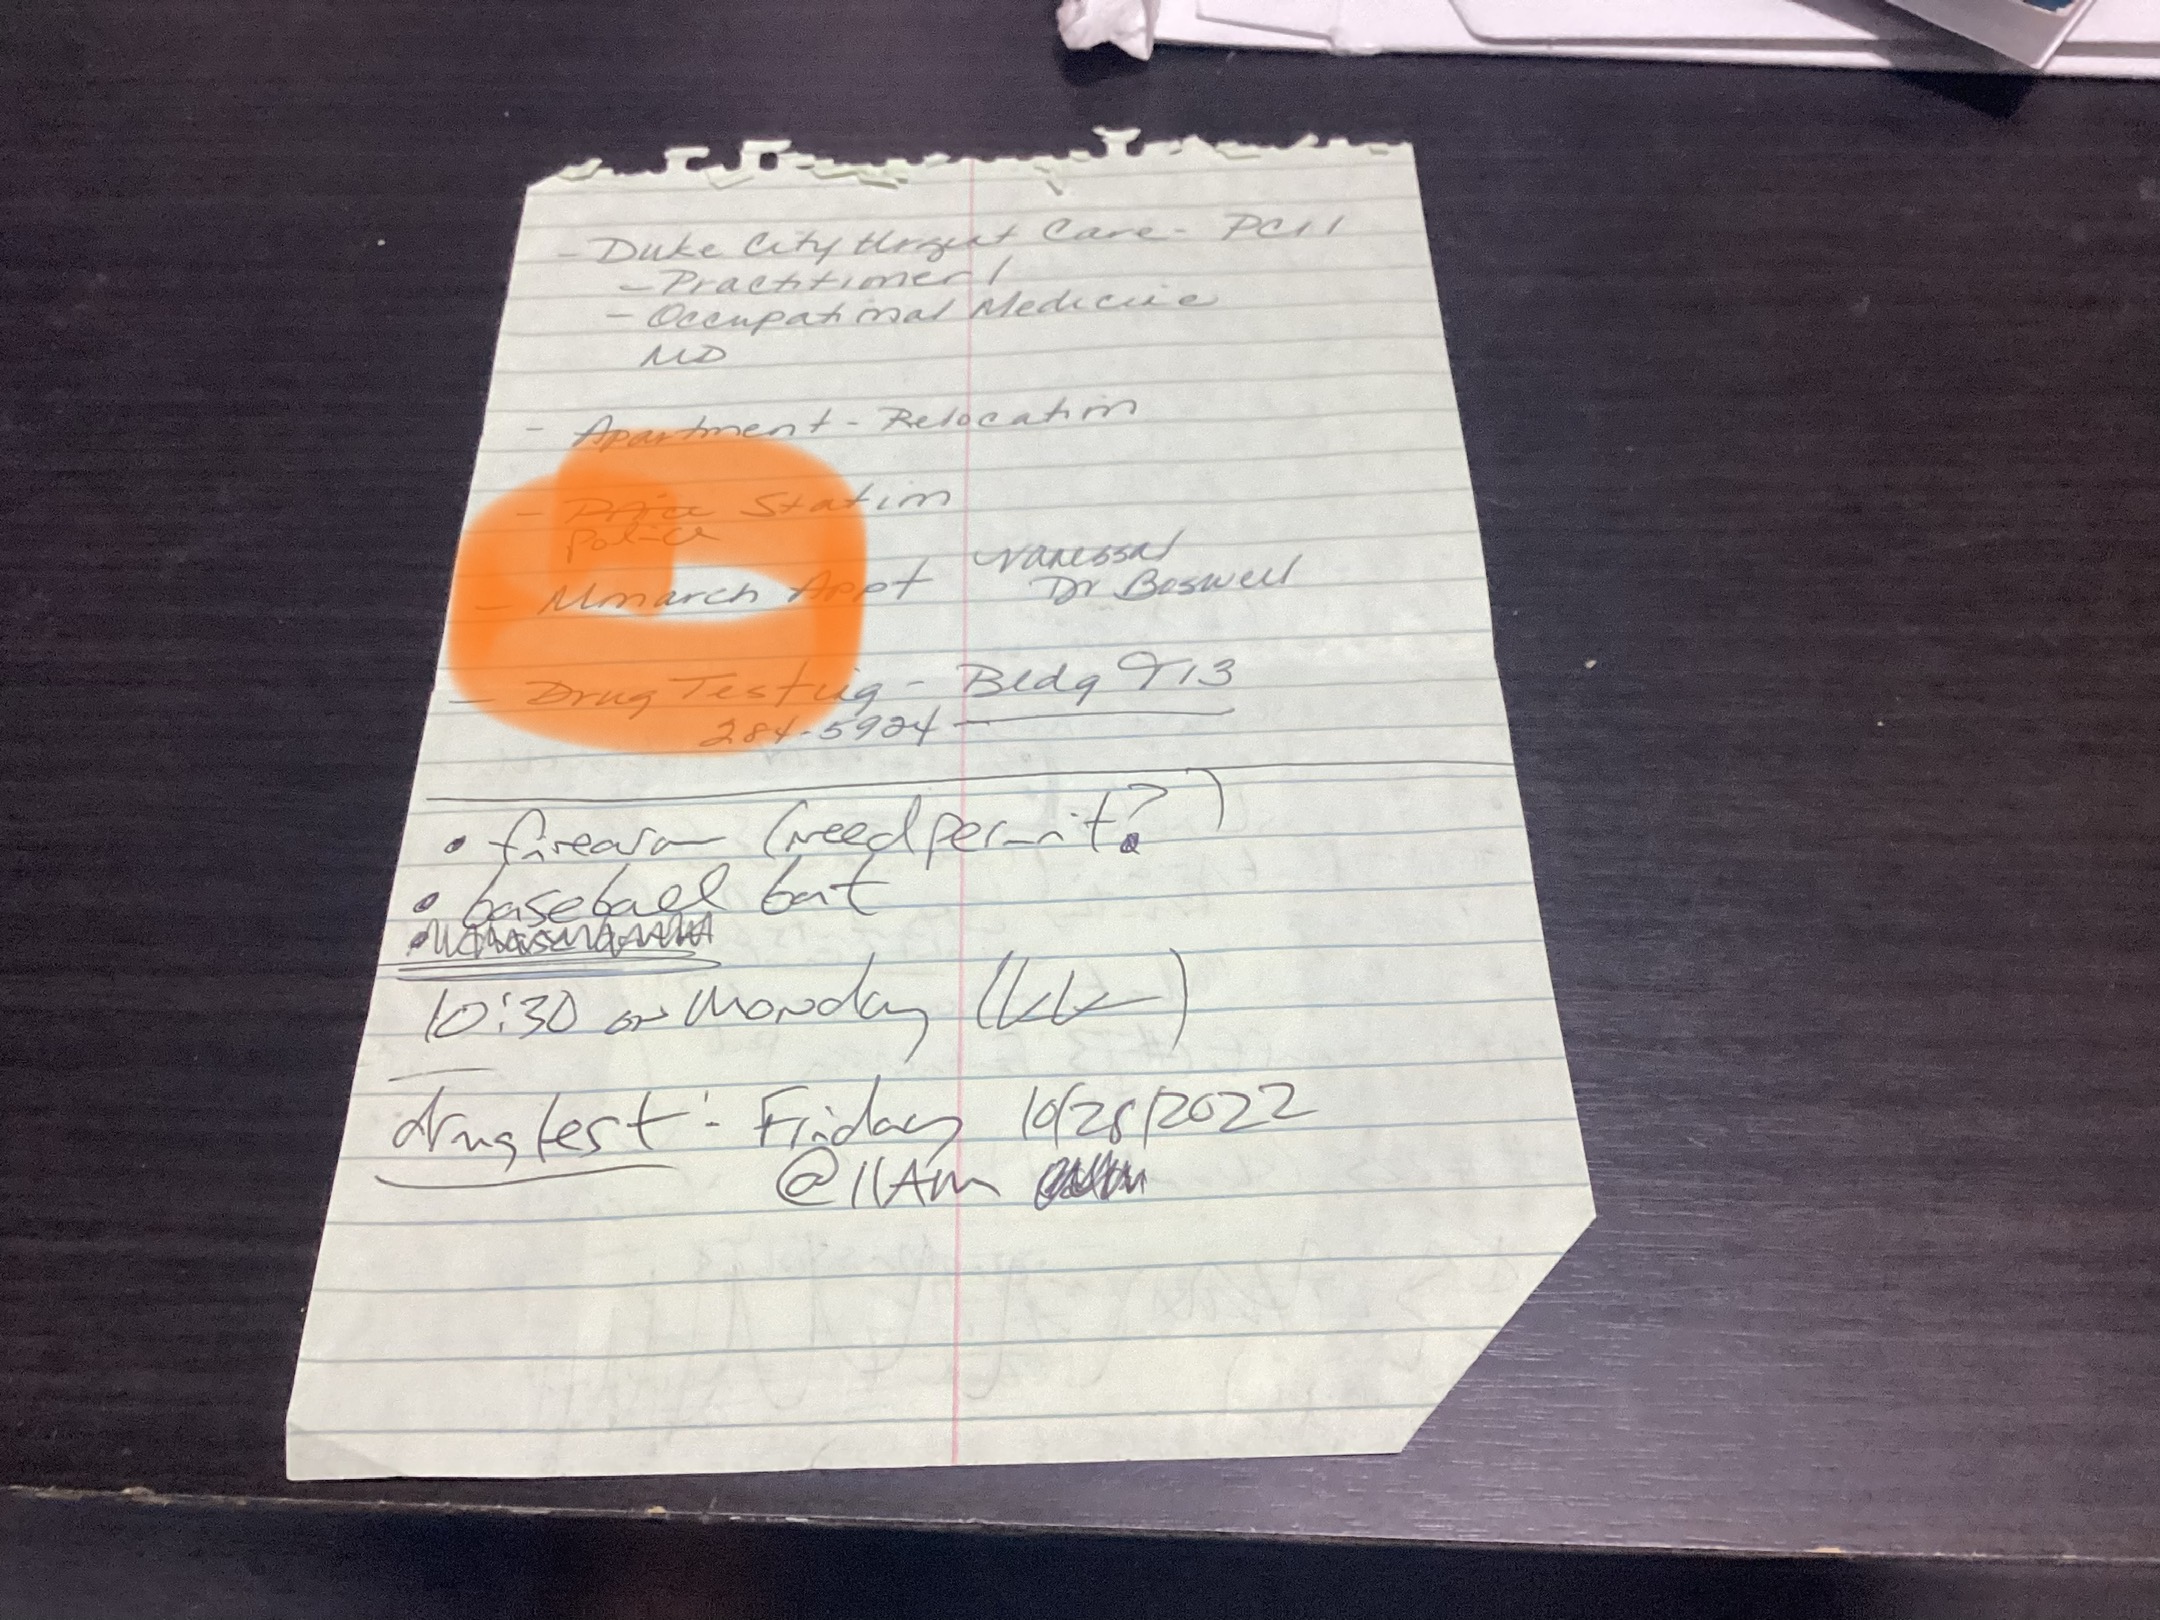 - Duke City Urgent Care - PC11
- Practitioner 1
- Occupational Medicine
MD
- Apartment - Relocation
- Station
Police
- Monarch Appt Vanessa
Dr Boswell
- Drug Testing - Bldg 913
284-5924
• firearm (need permit?)
• baseball bat
10:30 on Monday
drug test: Friday 10/28/2022
@11Am